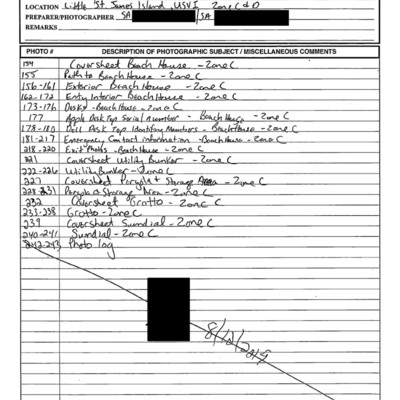 LOCATION Little St. James Island, USVI, Zone C & D
PREPARER/PHOTOGRAPHER SA /SA
REMARKS
PHOTO # DESCRIPTION OF PHOTOGRAPHIC SUBJECT / MISCELLANEOUS COMMENTS
154 Coversheet Beach House - Zone C
155 Path to Beach House - Zone C
156-161 Exterior Beach House - Zone C
162-172 Entry Interior Beach House - Zone C
173-176 Desks - Beach House - Zone C
177 Apple Desk Top Serial number - Beach House - Zone C
178-180 Dell Desk Top Identifying Numbers - Beach House - Zone C
181-217 Emergency Contact information - Beach House - Zone C
218-220 Exit Photos - Beach House - Zone C
221 Coversheet Utility Bunker - Zone C
222-226 Utility Bunker - Zone C
227 Coversheet Pergula + Storage Area - Zone C
228-231 Pergula & Storage Area - Zone C
232 Coversheet Grotto - Zone C
233-238 Grotto - Zone C
239 Coversheet Sundial - Zone C
240-241 Sundial - Zone C
242-243 Photo log
8/12/2019